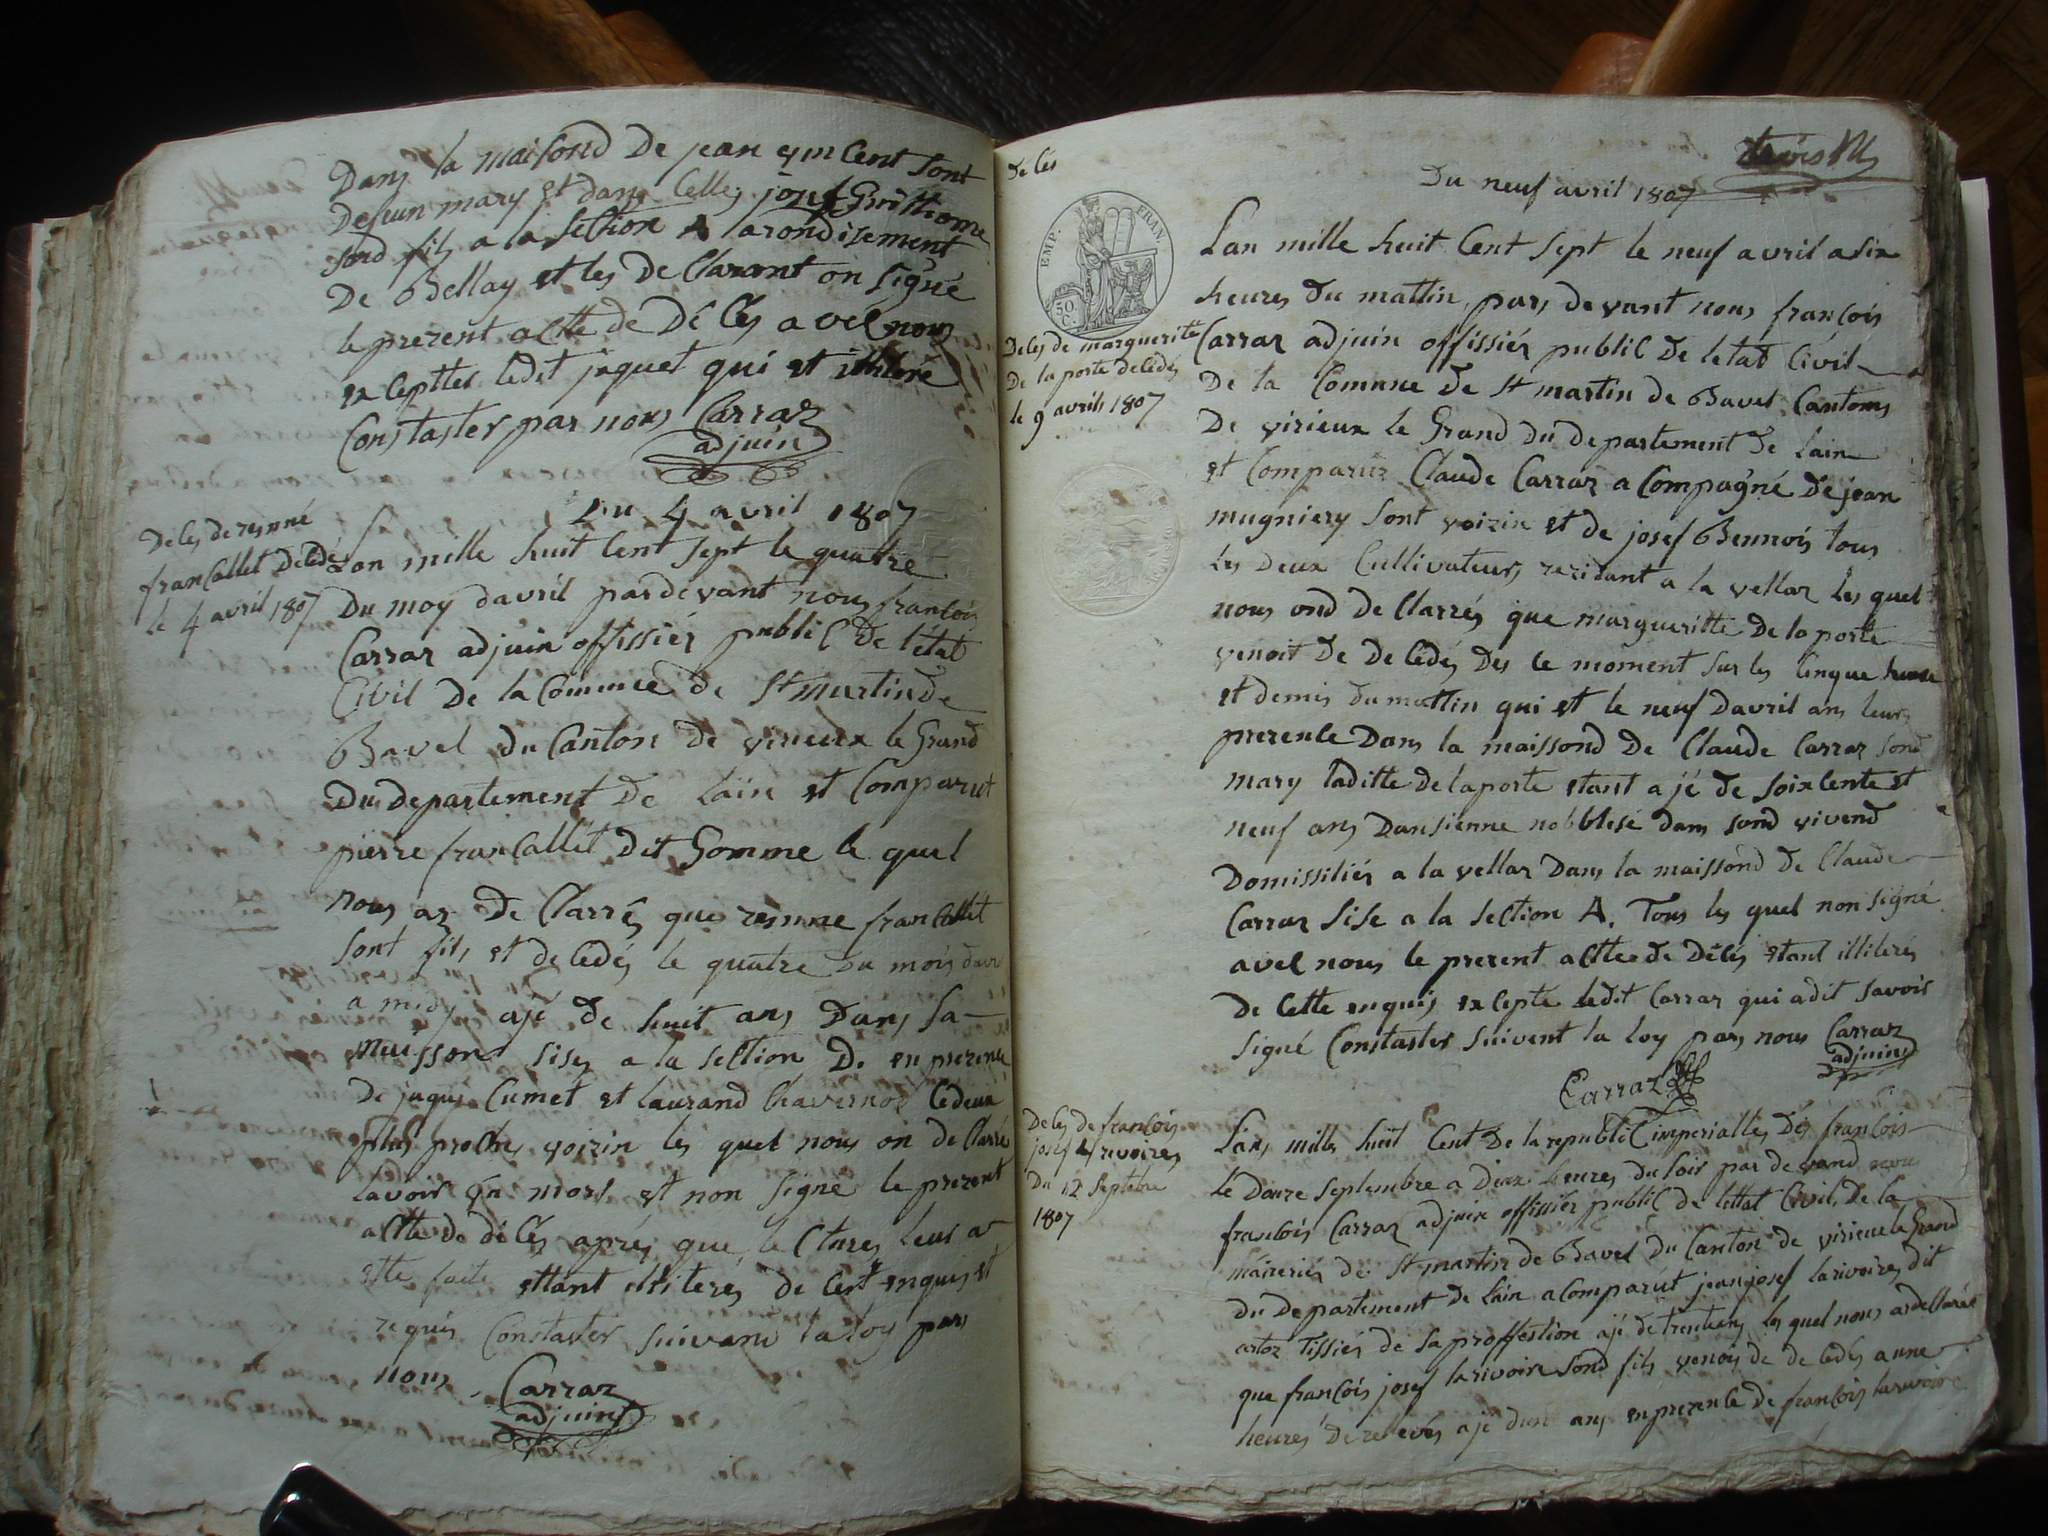 Dans la maisond De jean
Defun mary et dans Celle josef
sond fils a la Section A larondisement
De Bellay et les De Clarant on signé
le prezent actte de Dêcés avec nous
exceptter ledit jaquet qui et
Constaster par nous Carraz
adjuin
Du 4 avril 1807
Déces de
francallet decédé
le 4 avril 1807
Lan mille huit Cent sept le quattre
Du moy davril pardevant nous francois
Carraz adjuin offissiér public De létat
Civil De la Commune de St martin de
Bavel du Canton de virieux le Grand
Du Departement De Lain et Comparut
pierre francallet Dit Gomme le quel
nous az De Clarrés que francallet
sont fils et decédés le quatre Du mois davril
a midy ajé De huit ans Dans Sa
maisson sises a la section D. en prezence
De jaques Cumet et laurand Chavernoz les deux
plus proches voizin les quel nous on de Clarré
lavoir mort et non signé le prezent
actte De décés aprés que lectures leur a
étté faite éttant illiterés de Cest enquis et
requis Constaster suivant la loy par
nous Carraz
adjuin
De cés
EMP. FRAN.
50 C.
Du neuf avril 1807
Déces de margueritte
De la porte decédés
le 9 avrils 1807
Lan mille huit Cent sept le neuf avril a six
heures Du mattin pars devant nous francois
Carraz adjuin offissiér public De letat Civil
De la Comune De St martin de Bavel Cantons
De virieux le Grand Du departement De Lain
et Comparuz Claude Carraz a Compagné De jean
mugniery sont voizin et de josef Bennois tous
les deux Cullivateurs rezidant a la vellaz les quel
nous ond de Clarrés que margueritte De la porte
venoit De decédés Des le moment sur les cinque heure
et demis Du mattin qui et le neuf Davril ans leurs
prezence Dans la maissond De Claude Carraz sond
mary laditte de laporte etant ajé de soixcente et
neuf ans Dansienne nobblese dans sond vivend
Domissiliés a la vellaz Dans la maissond de Claude
Carraz sise a la section A. Tous les quel non signé
avec nous le prezent actte de Décés etant illiterés
De Cette enquis excepte ledit Carraz qui a dit savoir
signé Constaster suivent la loy pars nous Carraz
adjuin
Carraz
Déces de francois
josef revoires
Du 12 Septebre
1807
Lans mille huit Cent De la republic imperialles Dés francois
Le Douze septembre a Dix heures Du soir par de vand nous
francois Carraz adjuin offissiér public De lettat Civil De la
mairerié de St martin de Bavel Du Canton de virieux le Grand
Du Departement De Lain a Comparut jean josef larivoires dit
Tissiér de sa proffestion ajé de trentans les quel nous az declarés
que francois josef larivoire sond fils venois de decédés a une
heures De relevés ajé dun ans en prezence De francois larivoire